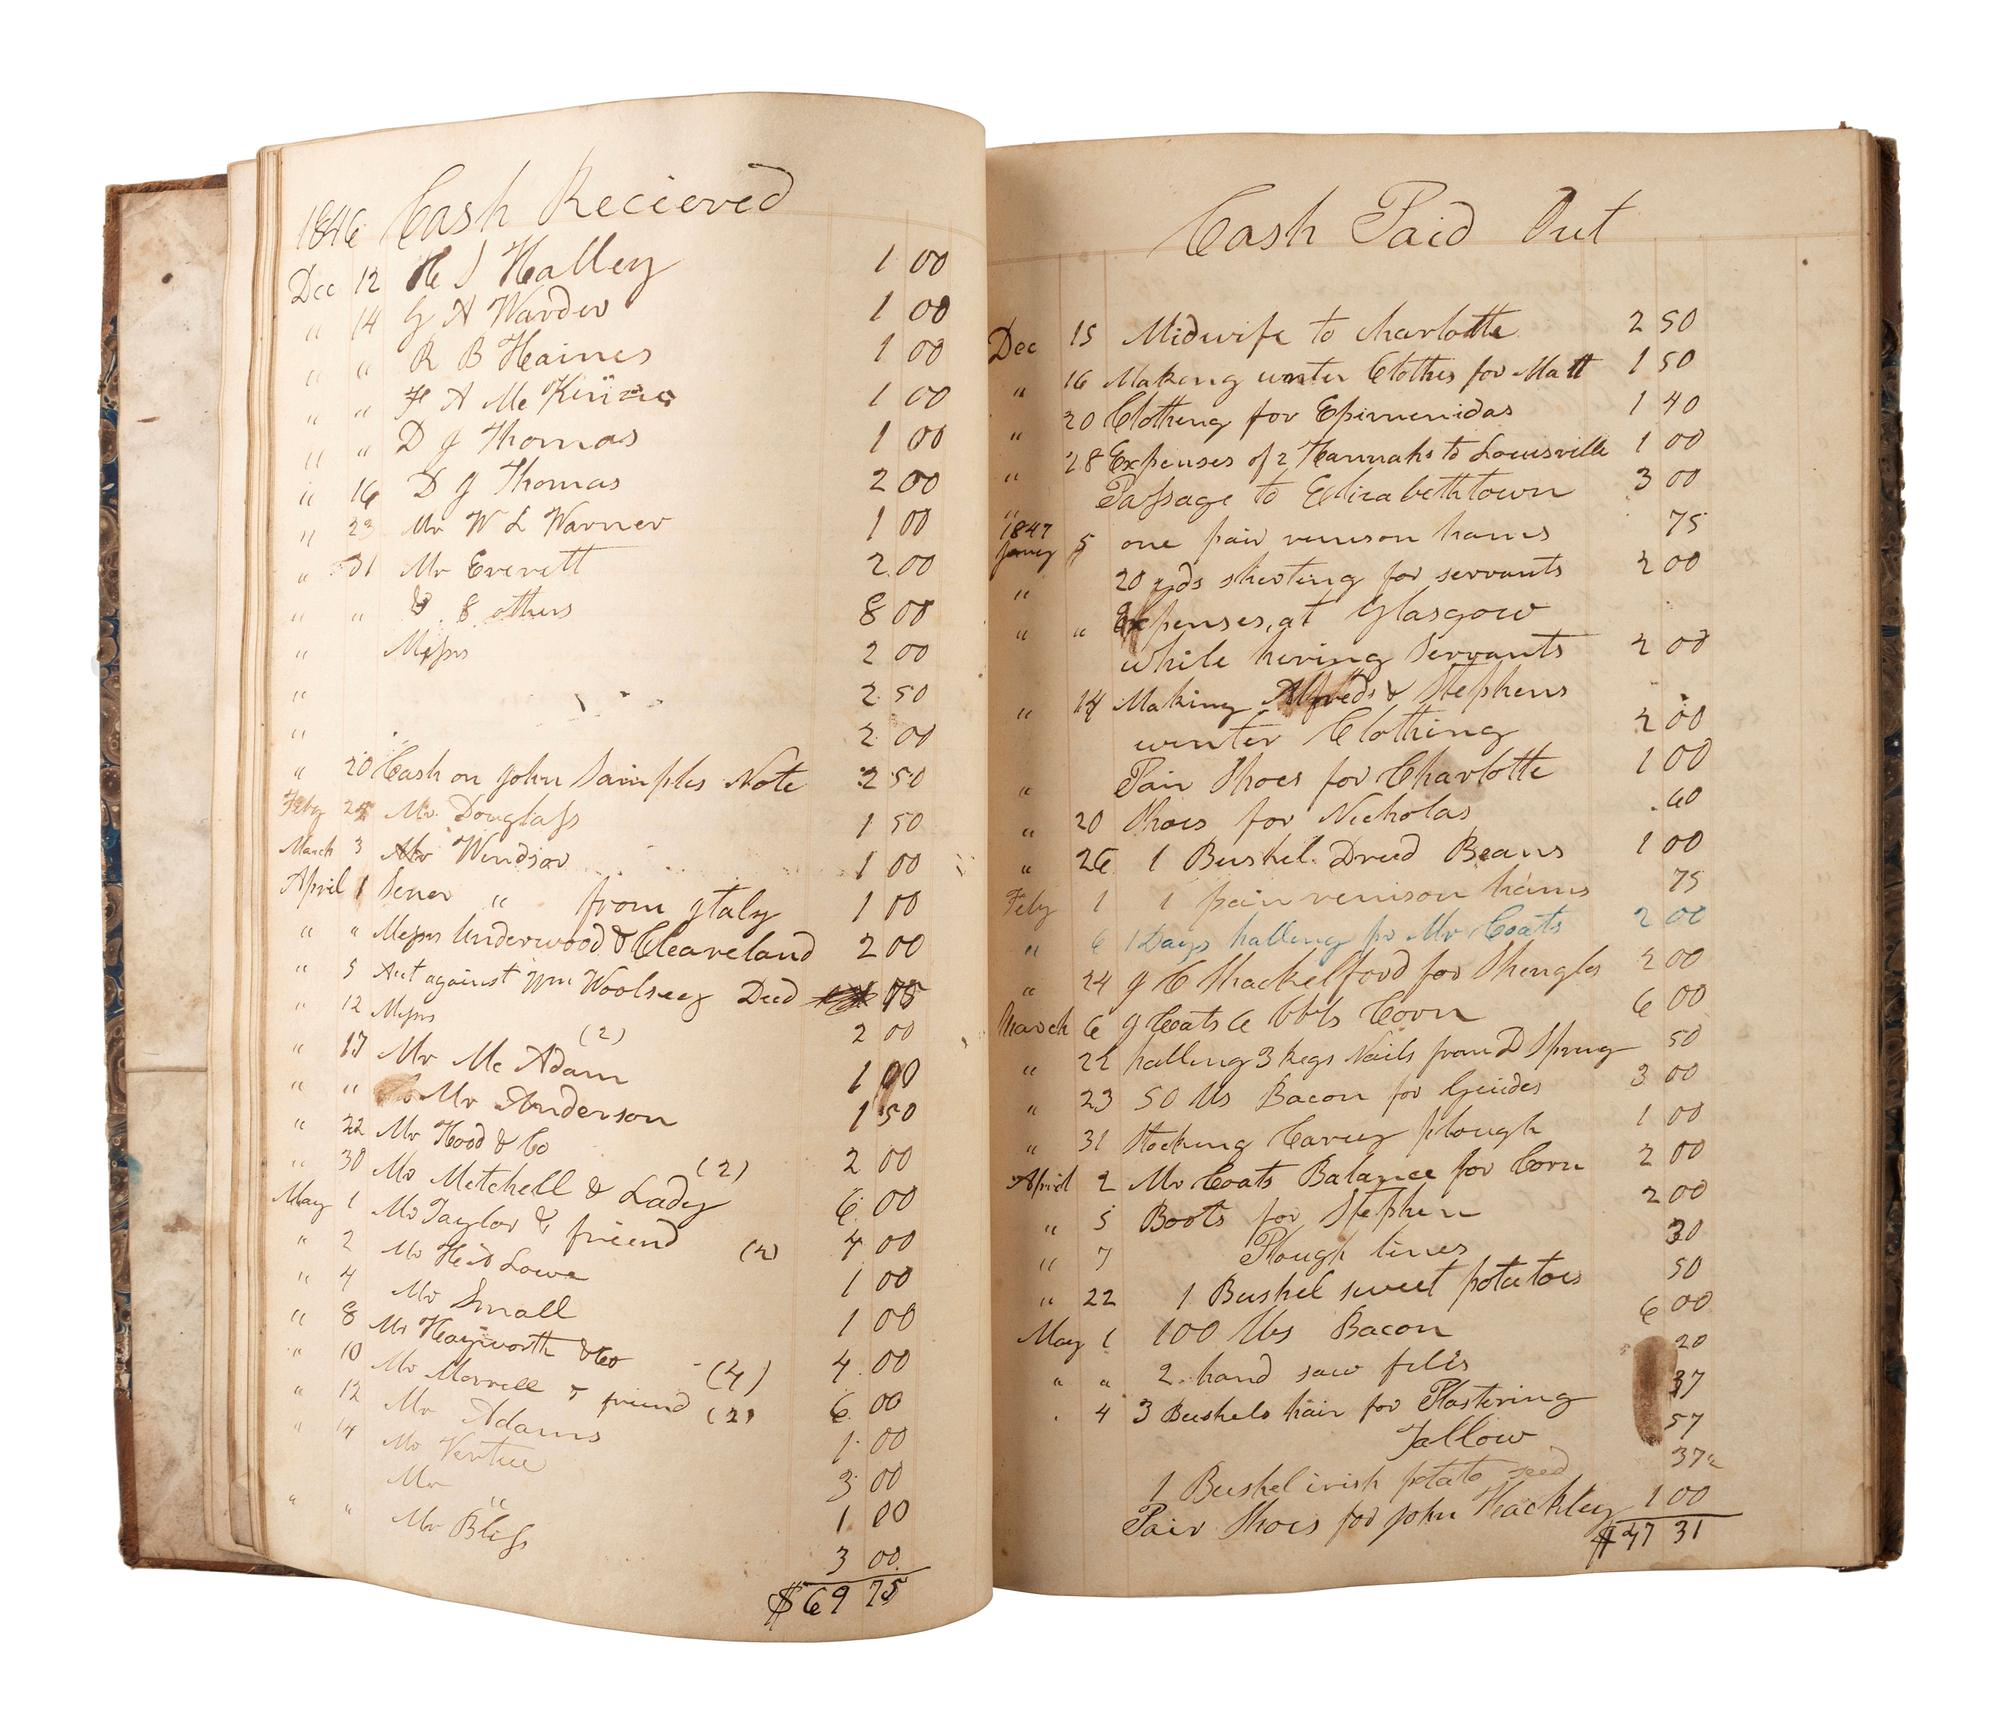 1846 Cash Recieved
Dec 12 H J Halley 1 00
" 14 G A Warder 1 00
" " R B Haines 1 00
" " F A Mc 1 00
" " D J Thomas 1 00
" 16 D J Thomas 2 00
" 23 Mr W L Warner 1 00
" 31 Mr Everett 2 00
" " & 8 others 8 00
" Messrs 2 00
" 2 50
" 2 00
" 20 Cash on John Samples Note 2 50
Feby 24 Mr Douglass 1 50
March 3 Mr Windsor 1 00
April 1 Sener " from Italy 1 00
" " Messrs Underwood & Cleaveland 2 00
" 5 Act against Wm Woolsey Deed 75
" 12 Messrs (2) 2 00
" 17 Mr Mc Adam 1 00
" " Mr Anderson 1 50
" 22 Mr Hood & Co (2) 2 00
" 30 Mr Metchell & Lady 6 00
May 1 Mr Taylor & friend (2) 4 00
" 2 Mr Lowe 1 00
" 4 Mr Small 1 00
" 8 Mr Hayworth & Co (4) 4 00
" 10 Mr Morrell & friend (2) 6 00
" 12 Mr Adams 1 00
" 14 Mr Vertue 3 00
Mr " 1 00
" " Mr Bliss 3 00
$69 75
Cash Paid Out
Dec 15 Midwife to Charlotte 2 50
" 16 Making winter Clothes for Matt 1 50
" 20 Clothing for Epimenidas 1 40
" 28 Expenses of 2 Hannahs to Louisville 1 00
" Passage to Elizabethtown 3 00
1847
Jany 5 one pair venison hams 75
" 20 yds sheeting for servants 2 00
" " Expenses at Glasgow
while hireing Servants 2 00
" 14 Making Alfreds & Stephens
winter Clothing 2 00
" Pair Shoes for Charlotte 1 00
" 20 Shoes for Nicholas .60
" 26 1 Bushel Dried Beans 1 00
Feby 1 1 pair venison hams 75
" 6 1 Days halling pr Mr Coats 2 00
" 24 J C Shackelford for Shingles 2 00
March 6 J Coats 6 bbls Corn 6 00
" 22 halling 3 kegs Nails from D Spring 50
" 23 50 lbs Bacon for Guides 3 00
" 31 Stocking Carey plough 1 00
April 2 Mr Coats Balance for Corn 2 00
" 5 Boots for Stephen 2 00
" 7 Plough lines 30
" 22 1 Bushel sweet potatoes 50
May 1 100 lbs Bacon 6 00
" " 2 hand saw files 20
" 4 3 Bushels hair for Plastering 37
Tallow 57
1 Bushel irish potato seed 37
Pair Shoes for John Hackley 1 00
$47 31